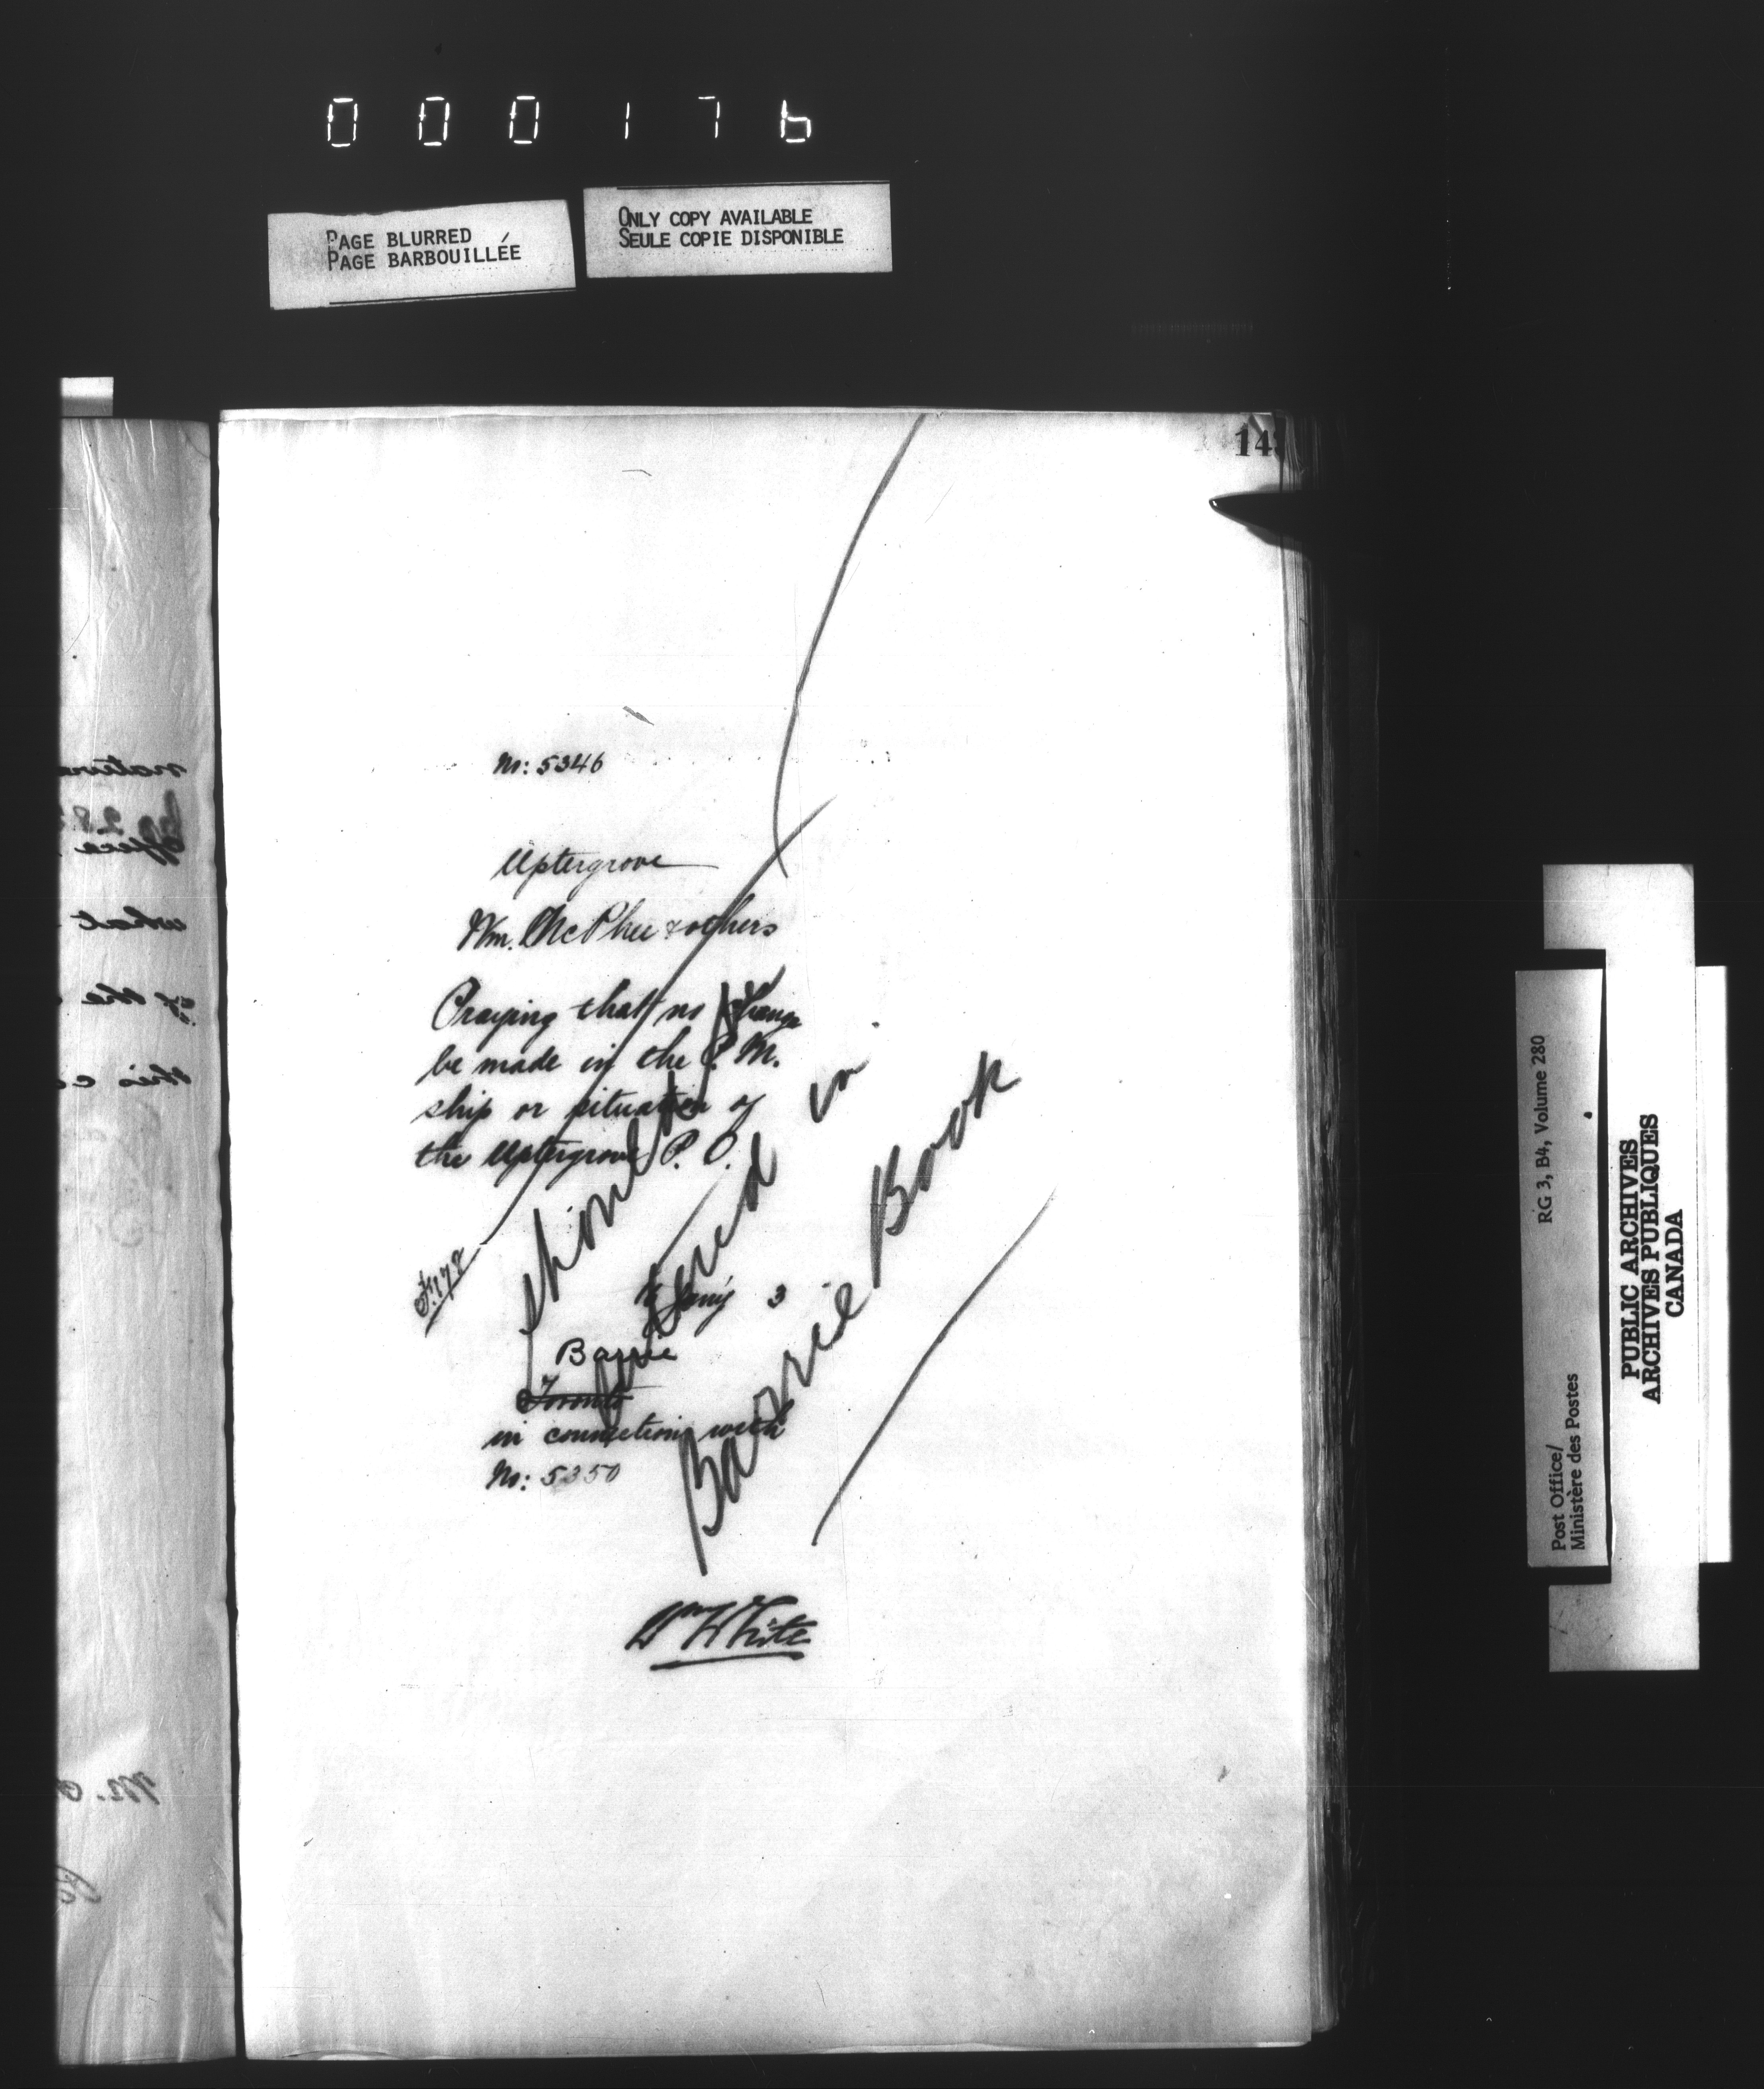 000176
PAGE BLURRED
PAGE BARBOUILLÉE
ONLY COPY AVAILABLE
SEULE COPIE DISPONIBLE
No: 5346
Uptergrove
Wm. McPhee & others
Praying that no change
be made in the P. M.
ship or situation of
the Uptergrove P. O.
Jany 3
Barrie
Toronto
in connection with
No: 5350
should be
in
Barrie Book
Wm White
RG 3, B4, Volume 280
Post Office/
Ministère des Postes
PUBLIC ARCHIVES
ARCHIVES PUBLIQUES
CANADA